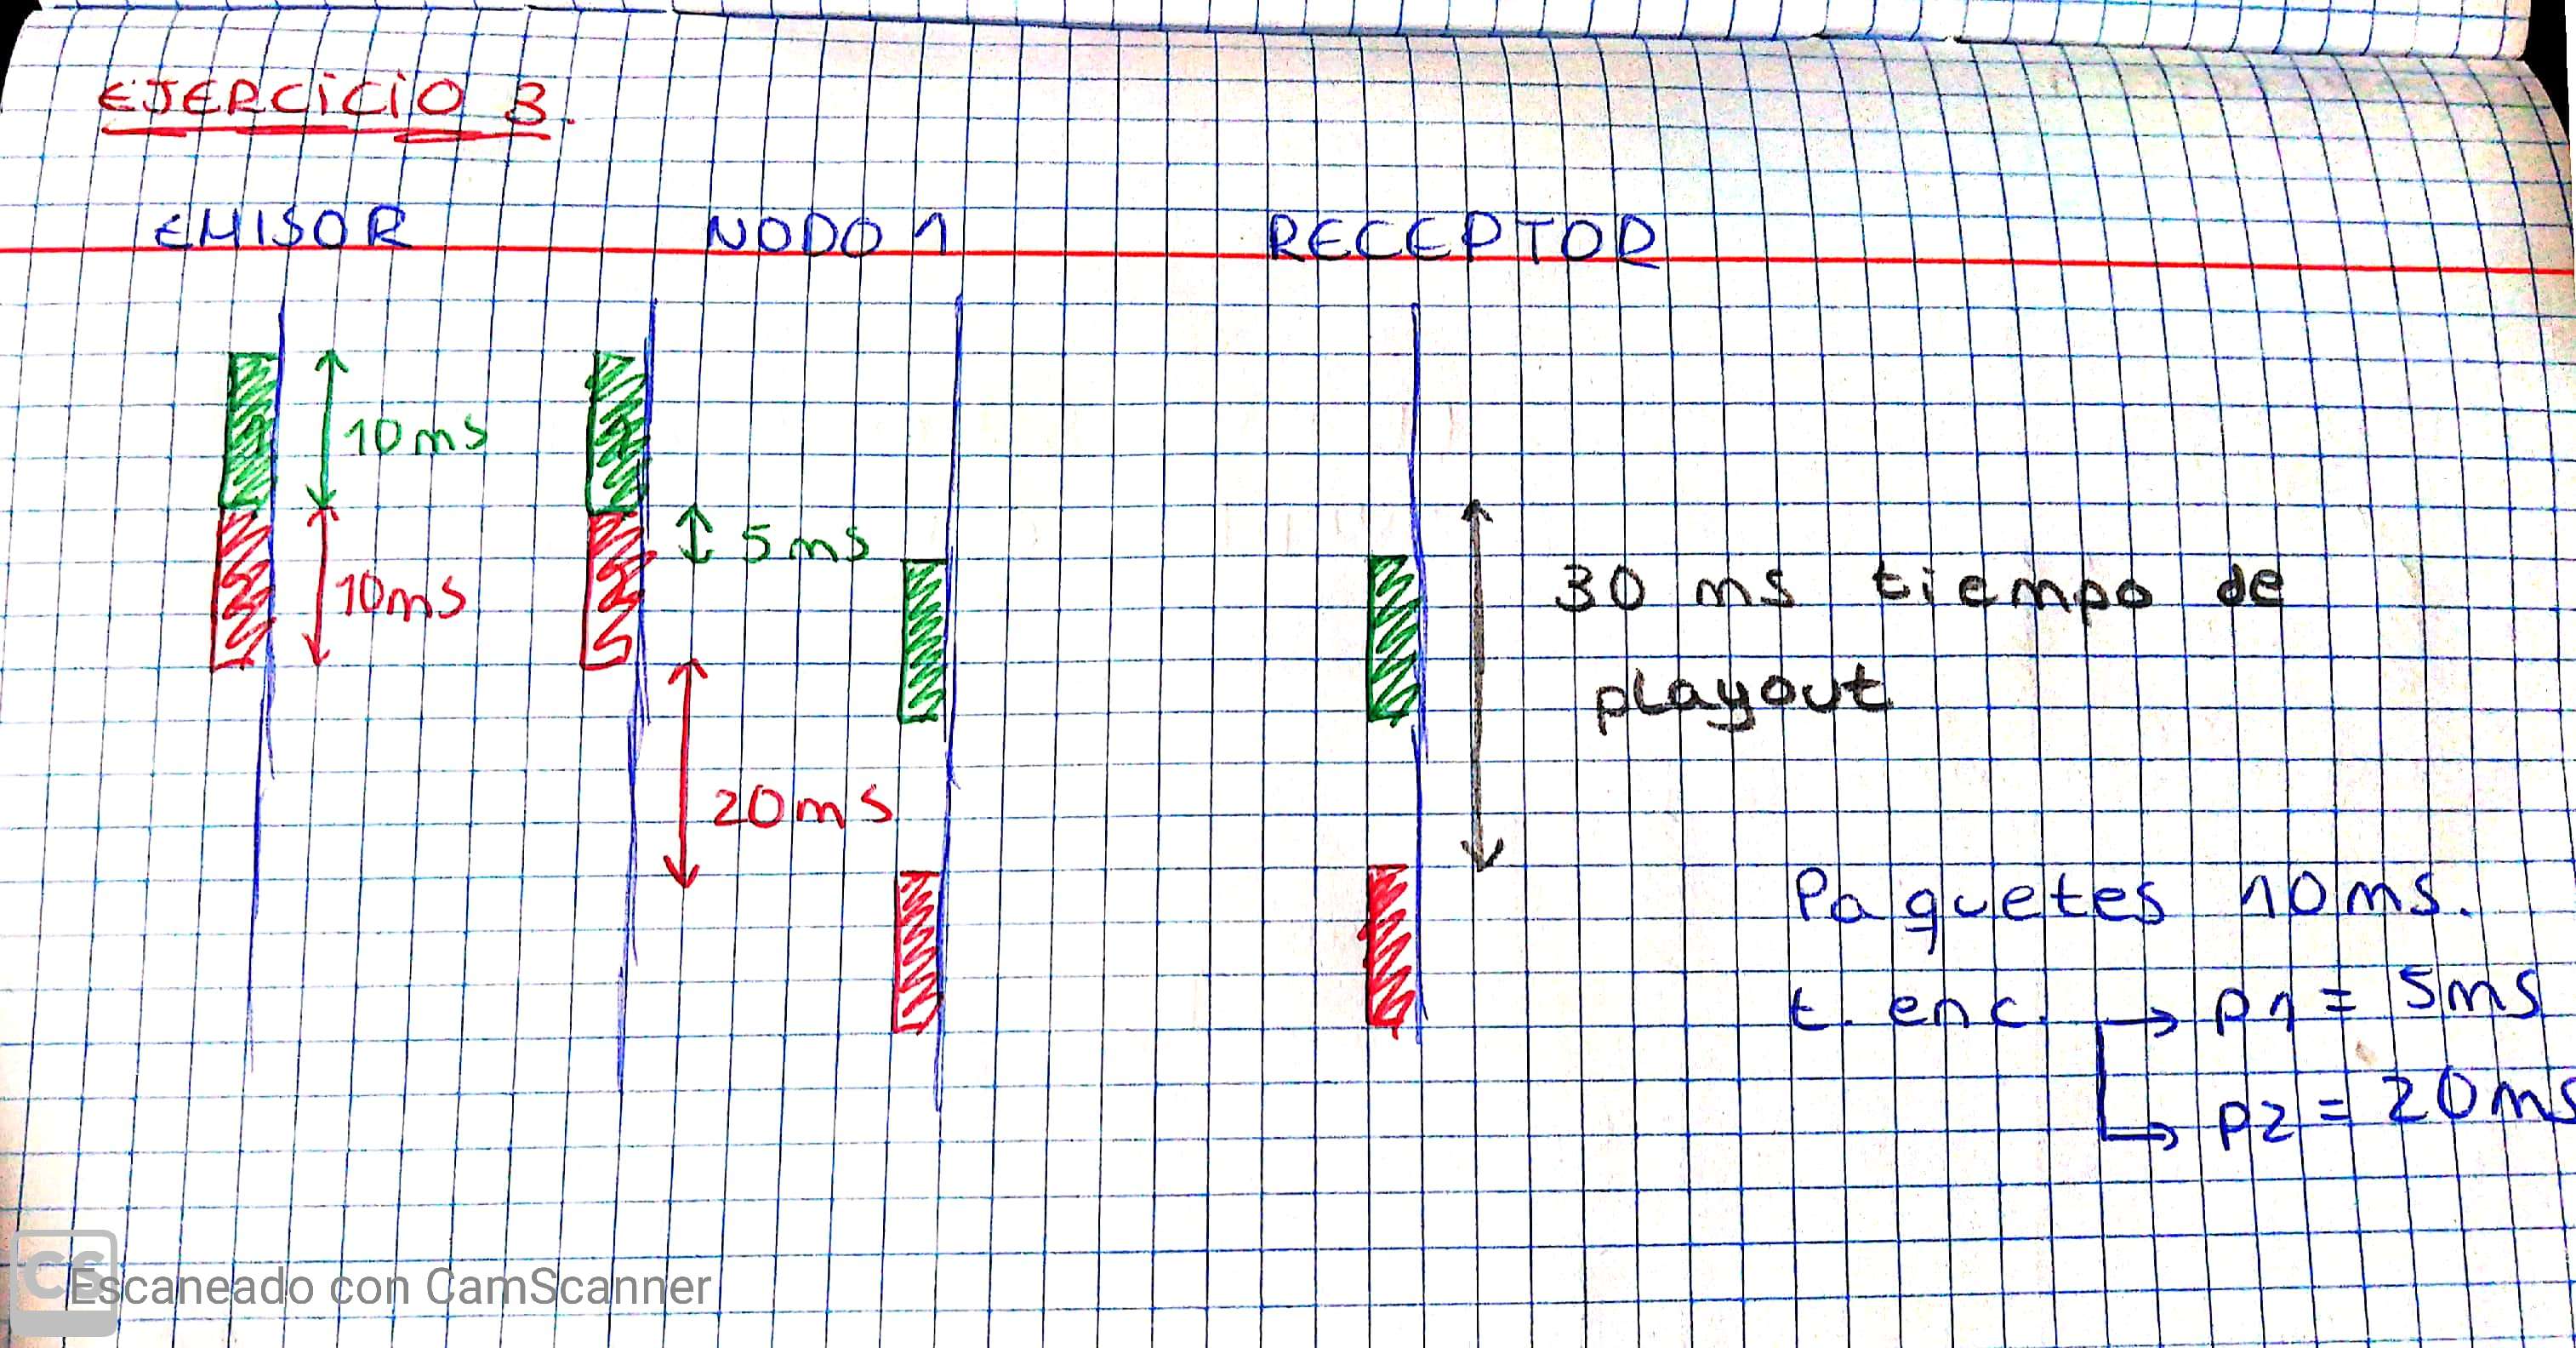 EJERCICIO 3.
EMISOR NODO 1 RECEPTOR
10ms
5ms
30 ms tiempo de
10ms
playout
20ms
Paquetes 10ms.
t. enc. → p1 = 5ms
→ p2 = 20ms
CS
Escaneado con CamScanner